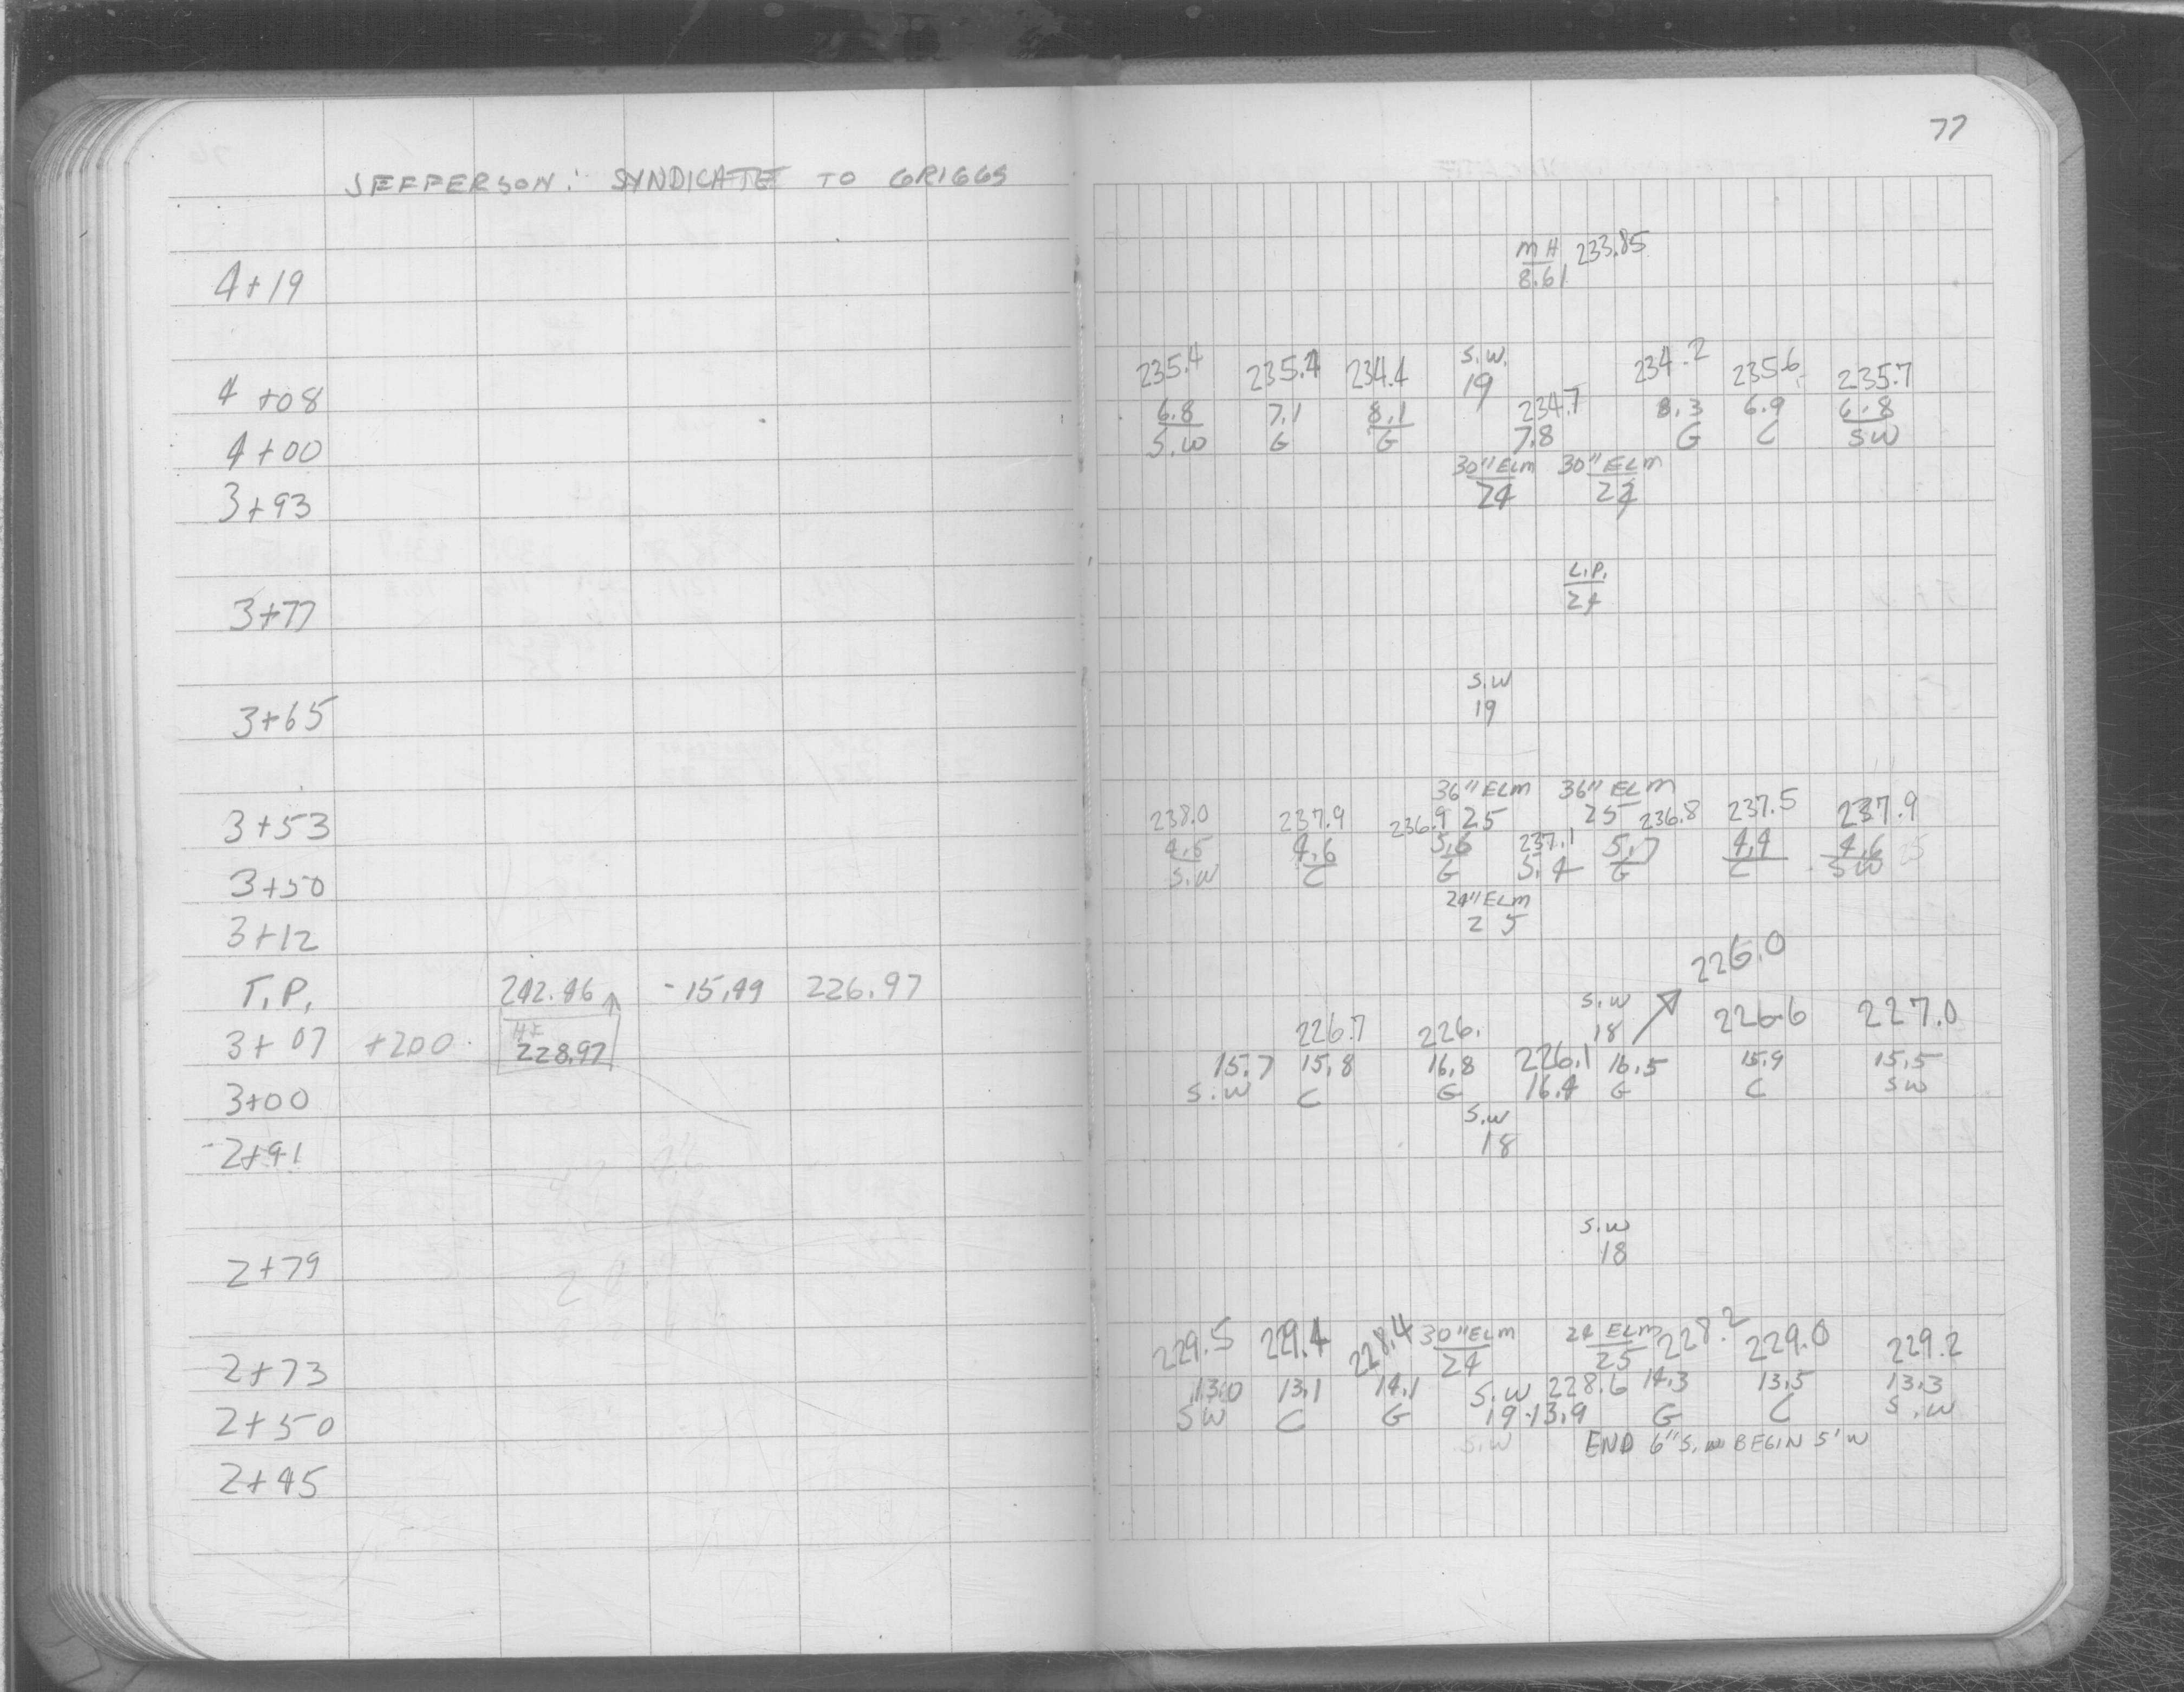 77
JEFFERSON: SYNDICATE TO GRIGGS
4+19
4+08
4+00
3+93
3+77
3+65
3+53
3+50
3+12
T.P. 242.46 -15.49 226.97
3+07 +2.00 HI 228.97
3+00
2+91
2+79
2+73
2+50
2+45
MH 233.85
8.61
235.4 235.4 234.4 S.W. 234.2 235.6 235.7
19
6.8 7.1 8.1 234.7 8.3 6.9 6.8
S.W G G 7.8 G C SW
30" ELM 30" ELM
24 24
L.P.
24
S.W
19
36" ELM 36" ELM
238.0 237.9 236.9 25 25 236.8 237.5 237.9
4.5 4.6 5.6 237.1 5.7 4.4 4.6
S.W C G 5.4 G C SW
24" ELM
25
226.0
S.W
226.7 226. 18 226.6 227.0
15.7 15.8 16.8 226.1 16.5 15.9 15.5
S.W C G 16.4 G C SW
S.W
18
S.W
18
229.5 229.4 228.4 30" ELM 24 ELM 228.2 229.0 229.2
24 25
13.0 13.1 14.1 S.W 228.6 14.3 13.5 13.3
SW C G 19 13.9 G C S.W
S.W END 6" S.W BEGIN 5' W